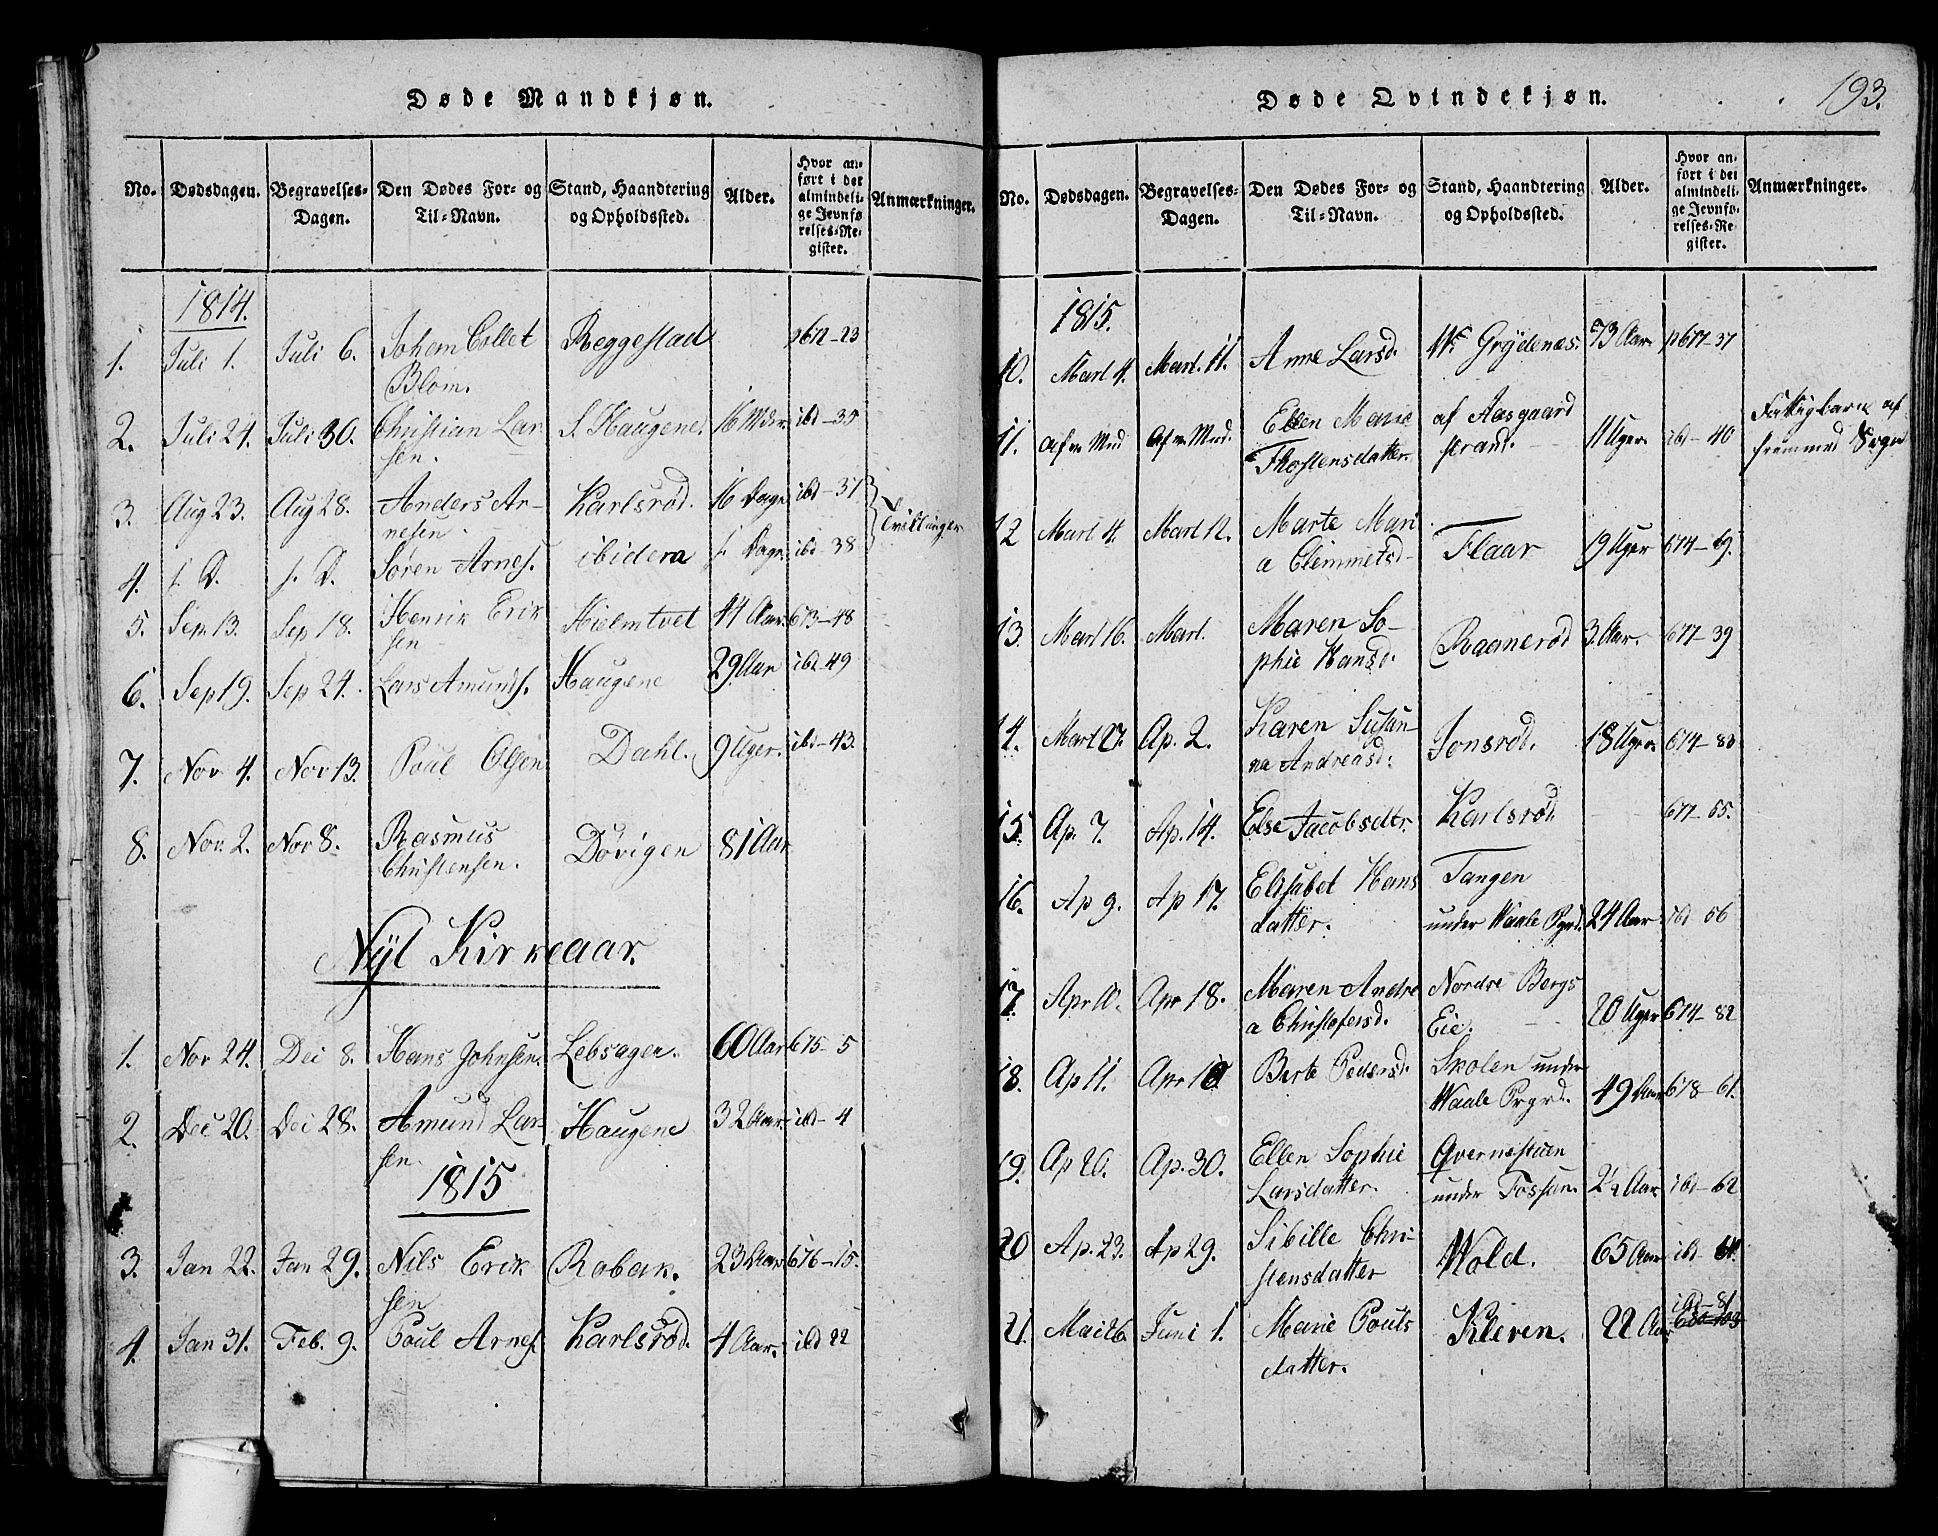 Døde Mandkjøn.
No. Dødsdagen. Begravelses-Dagen. Den Dødes For- og Til-Navn. Stand, Haandtering og Opholdssted. Alder. Hvor anført i det almindelige Jevnførelses-Register. Anmærkninger.
1814.
1. Juli 1. Juli 6. Johem Collet Reggestad p672-23
Blom.
2. Juli 24. Juli 30. Christian Lar- S Haugene. 16 Mdr ibd-35
sen.
3. Aug 23. Aug 28. Anders Ar- Karlsrød. 16 Dage ibd-37
nesen. Tvillinger
4. s. D. s. D. Søren Arnes. ibidem s. Dage ibd 38
5. Sep. 13. Sep 18. Henrik Erik Hielmtvet 44 Aar 673-48
sen
6. Sep 19. Sep 24. Lars Amunds. Haugene 29 Aar ibd-49
7. Nov 4. Nov 13. Poul Olsen Dahl. 9 Uger. ibd-43.
8. Nov. 2. Nov 8. Rasmus Døvigen 81 Aar
Christensen.
Nÿt Kirkeaar.
1. Nov 24. Dec 8. Hans Johnsen. Lebsager. 60 Aar 675-5
2. Dec 20. Dec 28. Amund Lar- Haugene 32 Aar. ibd-4
sen.
1815
3. Jan 22. Jan 29. Nils Erik Robak. 23 Aar 676-15.
sen
4. Jan 31. Feb. 9. Poul Arnes. Karlsrød. 4 Aar. ibd 22
Døde Qvindekjøn. 193.
No. Dødsdagen. Begravelses-Dagen. Den Dødes For- og Til-Navn. Stand, Haandtering og Opholdssted. Alder. Hvor anført i det almindelige Jevnførelses-Register. Anmærkninger.
1815.
10. Mart 4. Mart. 11. Anne Larsd. Grÿdenæs. 73 Aar p677-37
11. af m. Mnd af m. Mnd. Ellen Marie af Aasgaard 11 Uger. ibd-40 Fattigbarn af
Thostensdatter. strand. fremmed Sogn
12 Mart 4. Mart 12. Marte Mari Flaar 19 Uger 674-69.
a Clemmetsd-
13. Mart 16. Mart. Maren So- Raanerød 3. Aar. 677-39
phie Hansd.
14. Mart 27. Ap. 2. Karen Susan- Jonsrød. 18 Uger 674-83
na Andreasd:
15. Ap. 7. Ap. 14. Else Jacobsdtr. Karlsrød. 677-55.
16. Ap 9. Ap 17. Elisabet Hans Tangen
datter. under Waale Pgrd. 24 Aar ibd 56
17. Apr 10. Apr 18. Maren Andre Nordre Bergs 20 Uger 674-82
a Christofersd. Eie.
18. Ap 11. Apr 18 Berte Pedersd. Skolen under 49 Aar 678-61.
Waale Prgrd.
19. Ap 20. Ap. 30. Ellen Sophie Qvernstuen
Larsdatter. under Fossan. 2½ Aar ibd-62
20 Ap. 23. Ap 29. Sibille Chri- Wold. 65 Aar ibd 64.
stensdatter
21. Mai 26. Juni 1. Marie Pouls Kleven. 22 Aar ibd-81
datter. 680-103